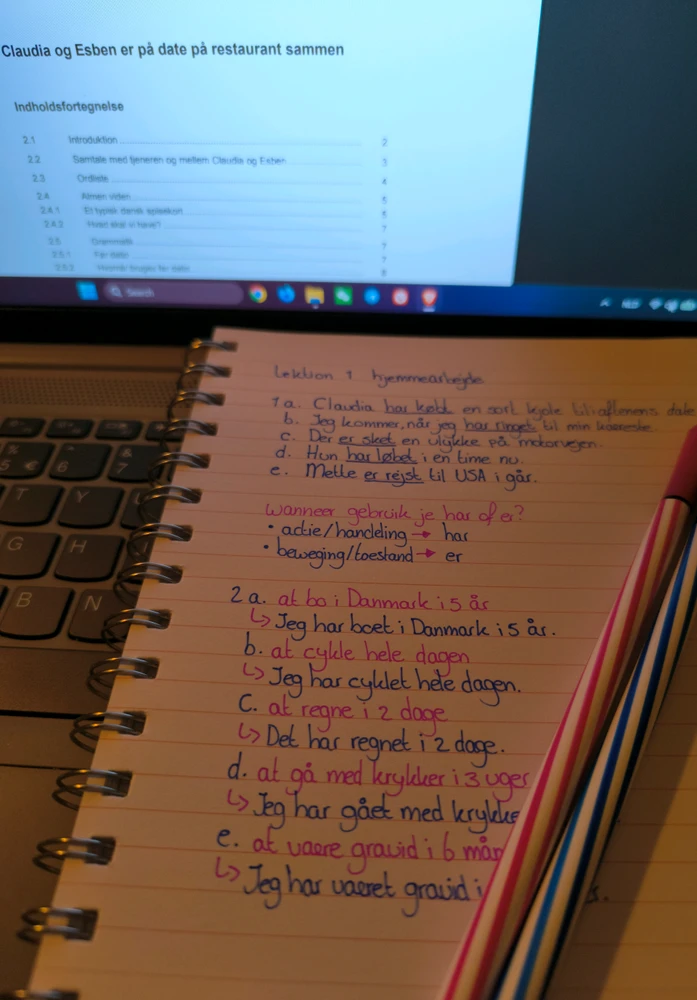 Claudia og Esben er på date på restaurant sammen
Indholdsfortegnelse
2.1 Introduktion 2
2.2 Samtale med tjeneren og mellem Claudia og Esben 3
2.3 Ordliste 4
2.4 Almen viden 5
2.4.1 Et typisk dansk spisekort
2.4.2 Hvad skal vi have? 7
2.5 Grammatik 7
2.5.1 Før datid 7
2.5.2 Hvornår bruges før datid 8
Search
Lektion 1 hjemmearbejde
1a. Claudia har købt en sort kjole til aftenens date.
b. Jeg kommer, når jeg har ringet til min kæreste.
c. Der er sket en ulykke på motorvejen.
d. Hun har løbet i en time nu.
e. Mette er rejst til USA i går.
wanneer gebruik je har of er?
• actie/handeling → har
• beweging/toestand → er
2a. at bo i Danmark i 5 år
↳ Jeg har boet i Danmark i 5 år.
b. at cykle hele dagen
↳ Jeg har cyklet hele dagen.
c. at regne i 2 dage
↳ Det har regnet i 2 dage.
d. at gå med krykker i 3 uger
↳ Jeg har gået med krykke
e. at være gravid i 6 mån
↳ Jeg har været gravid i s.
5 € 6 & 7
T Y
G H
B N